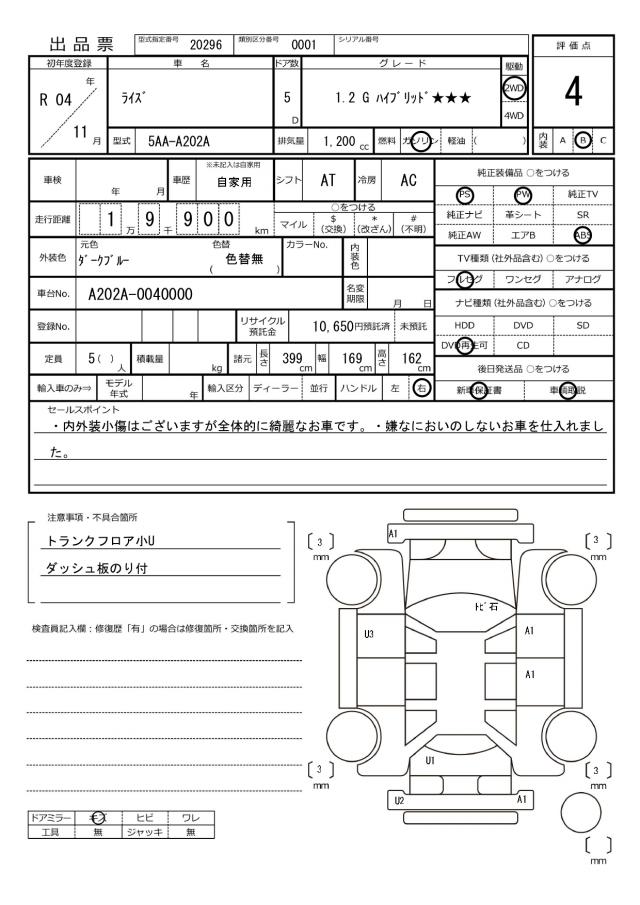 出品票 型式指定番号 20296 類別区分番号 0001 シリアル番号
評価点
初年度登録 車名 ドア数 グレード 駆動
R 04 年 11 月 ﾗｲｽﾞ 5 D 1.2 G ﾊｲﾌﾞﾘｯﾄﾞ★★★ 2WD 4WD
4
型式 5AA-A202A 排気量 1,200 cc 燃料 ガソリン 軽油 ( ) 内装 A B C
車検 年 月 車歴 ※未記入は自家用 自家用 シフト AT 冷房 AC
純正装備品 ○をつける
PS PW 純正TV
純正ナビ 革シート SR
純正AW エアB ABS
走行距離 1 万 9 千 9 0 0 km
○をつける
マイル $ (交換) * (改ざん) # (不明)
外装色 元色 ﾀﾞｰｸﾌﾞﾙｰ 色替 ( 色替無 ) カラーNo. 内装色
TV種類 (社外品含む) ○をつける
フルセグ ワンセグ アナログ
車台No. A202A-0040000 名変期限 月 日
ナビ種類 (社外品含む) ○をつける
HDD DVD SD
DVD再生可 CD
登録No. リサイクル預託金 10,650円預託済 未預託
定員 5 ( ) 人 積載量 kg 諸元 長さ 399 cm 幅 169 cm 高さ 162 cm
後日発送品 ○をつける
新車保証書 車輌取説
輸入車のみ⇒ モデル年式 年 輸入区分 ディーラー 並行 ハンドル 左 右
セールスポイント
・内外装小傷はございますが全体的に綺麗なお車です。・嫌なにおいのしないお車を仕入れまし
た。
注意事項・不具合箇所
トランクフロア小U
ダッシュ板のり付
検査員記入欄：修復歴「有」の場合は修復箇所・交換箇所を記入
A1
[ 3 ] mm
[ 3 ] mm
ﾄﾋﾞ石
U3
A1
A1
U1
[ 3 ] mm
[ 3 ] mm
U2
A1
[ ] mm
ドアミラー キズ ヒビ ワレ
工具 無 ジャッキ 無